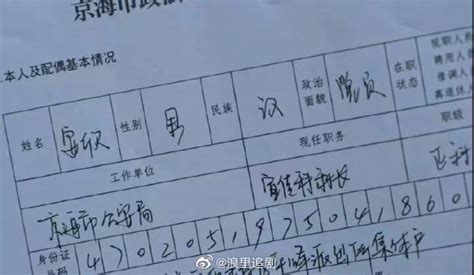 京海市政
本人及配偶基本情况
姓名 安欣 性别 男 民族 汉 政治面貌 党员 在职状态 现职人员
聘用人
借调人
离退休人
工作单位 现任职务 职级
京海市公安局 宣传科科长 正科
身份证号码 4 7 0 2 0 5 1 9 7 5 0 4 1 8 6 0
派出所集体户
@浪里追剧